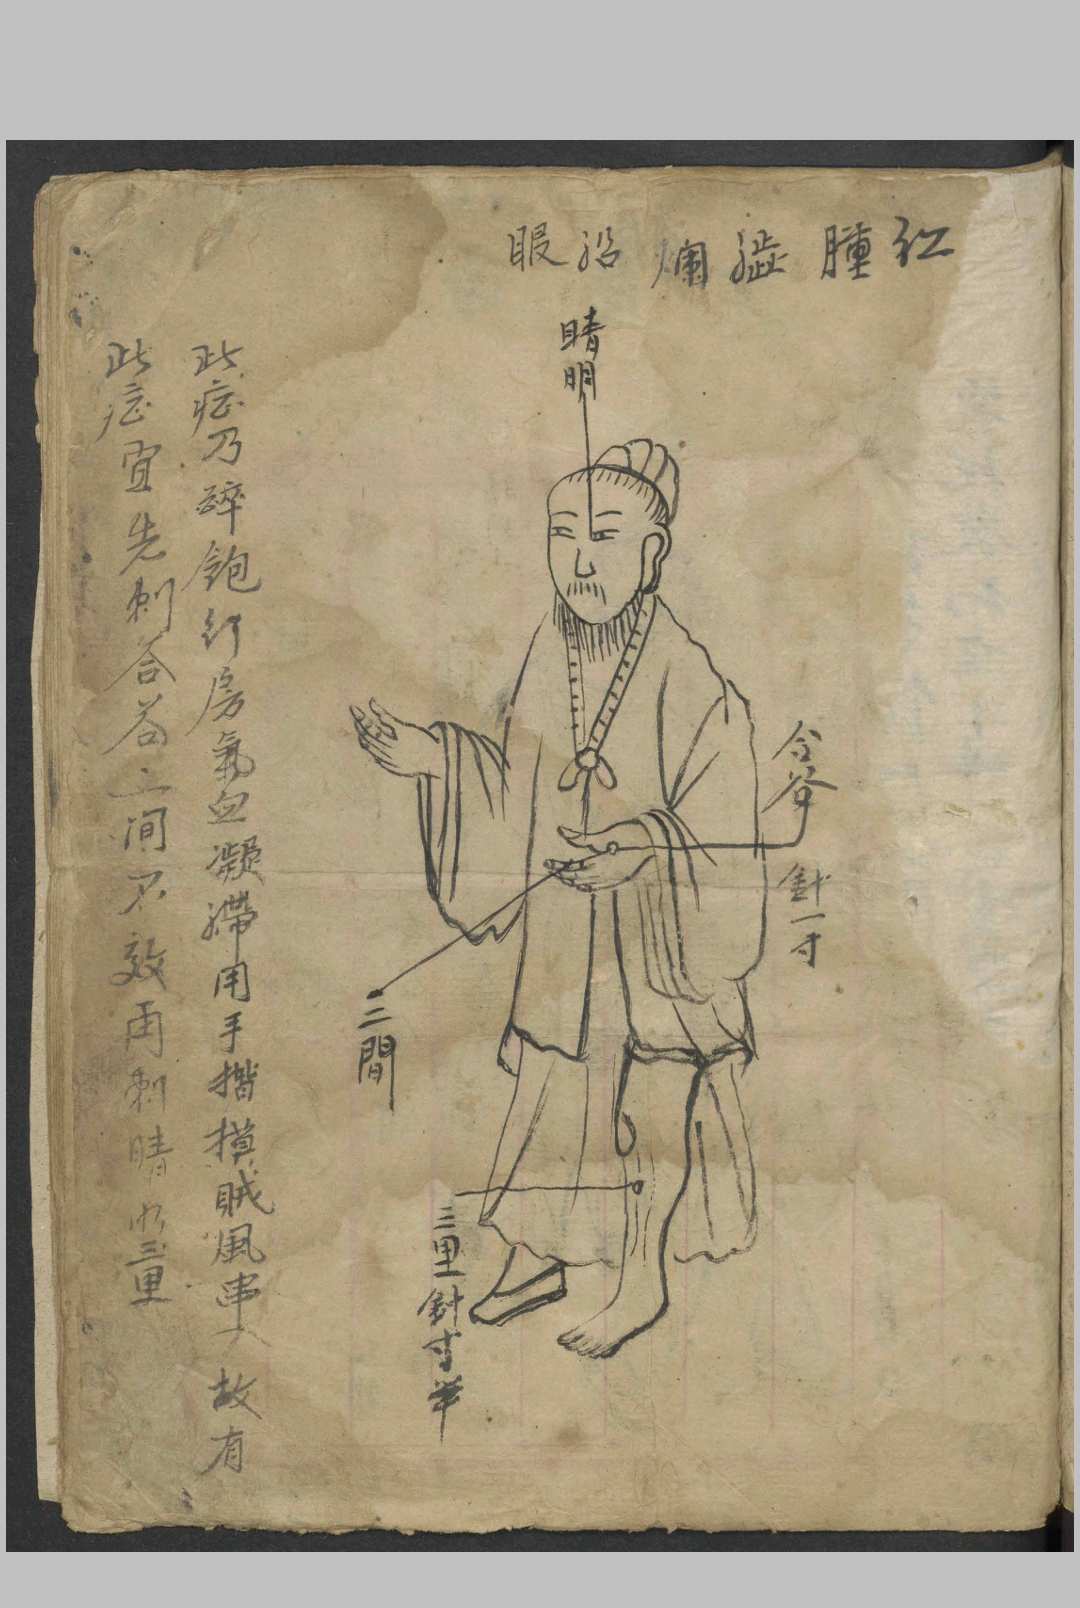 紅腫澁爛沿眼
睛明
合谷
針一寸
三間
三里針寸半
此症乃醉飽行房氣血凝滯用手揩摸賊風串入故有
此症宜先刺合谷二間不效再刺睛明三里